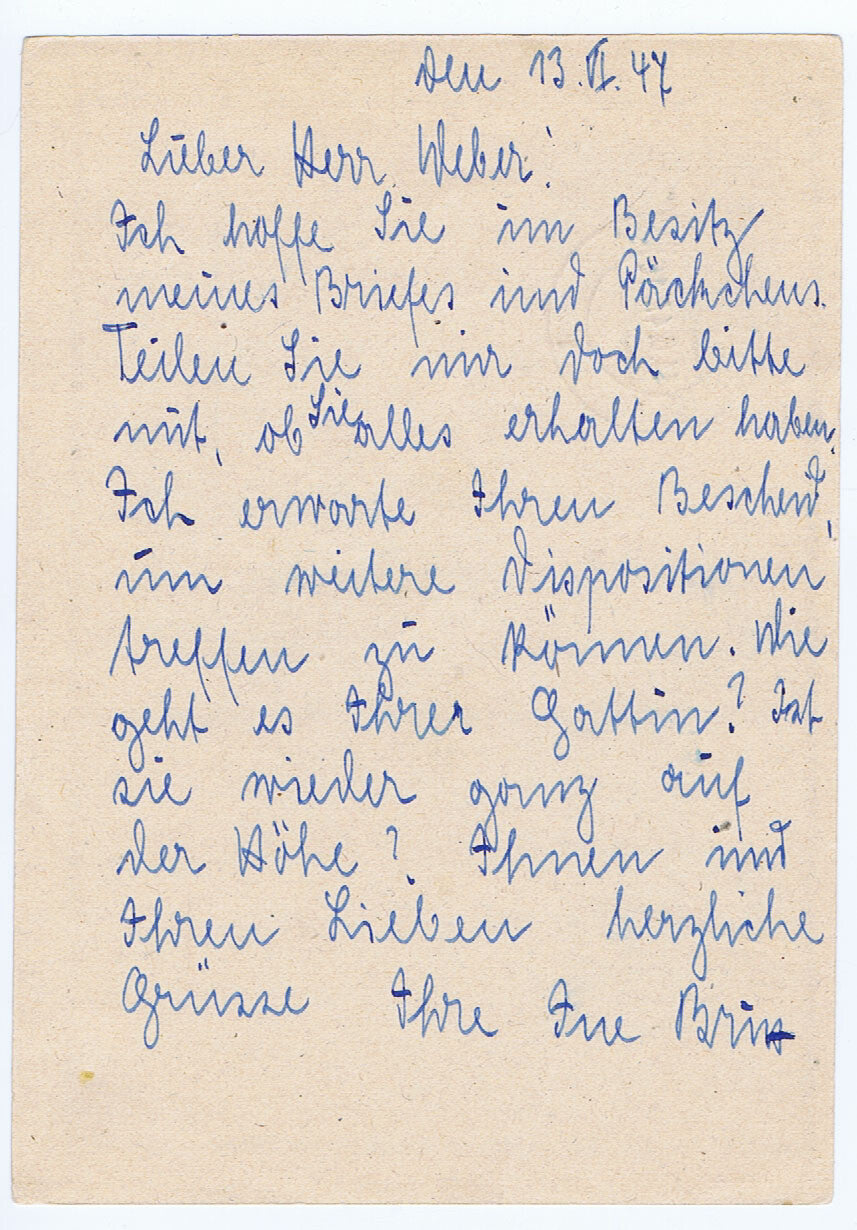 den 13.VI.47
Lieber Herr Weber!
Ich hoffe Sie im Besitz
meines Briefes und Päckchens.
Teilen Sie mir doch bitte
mit, ob Sie alles erhalten haben.
Ich erwarte Ihren Bescheid,
um weitere Dispositionen
treffen zu können. Wie
geht es Ihrer Gattin? Ist
sie wieder ganz auf
der Höhe? Ihnen und
Ihren Lieben herzliche
Grüsse Ihre